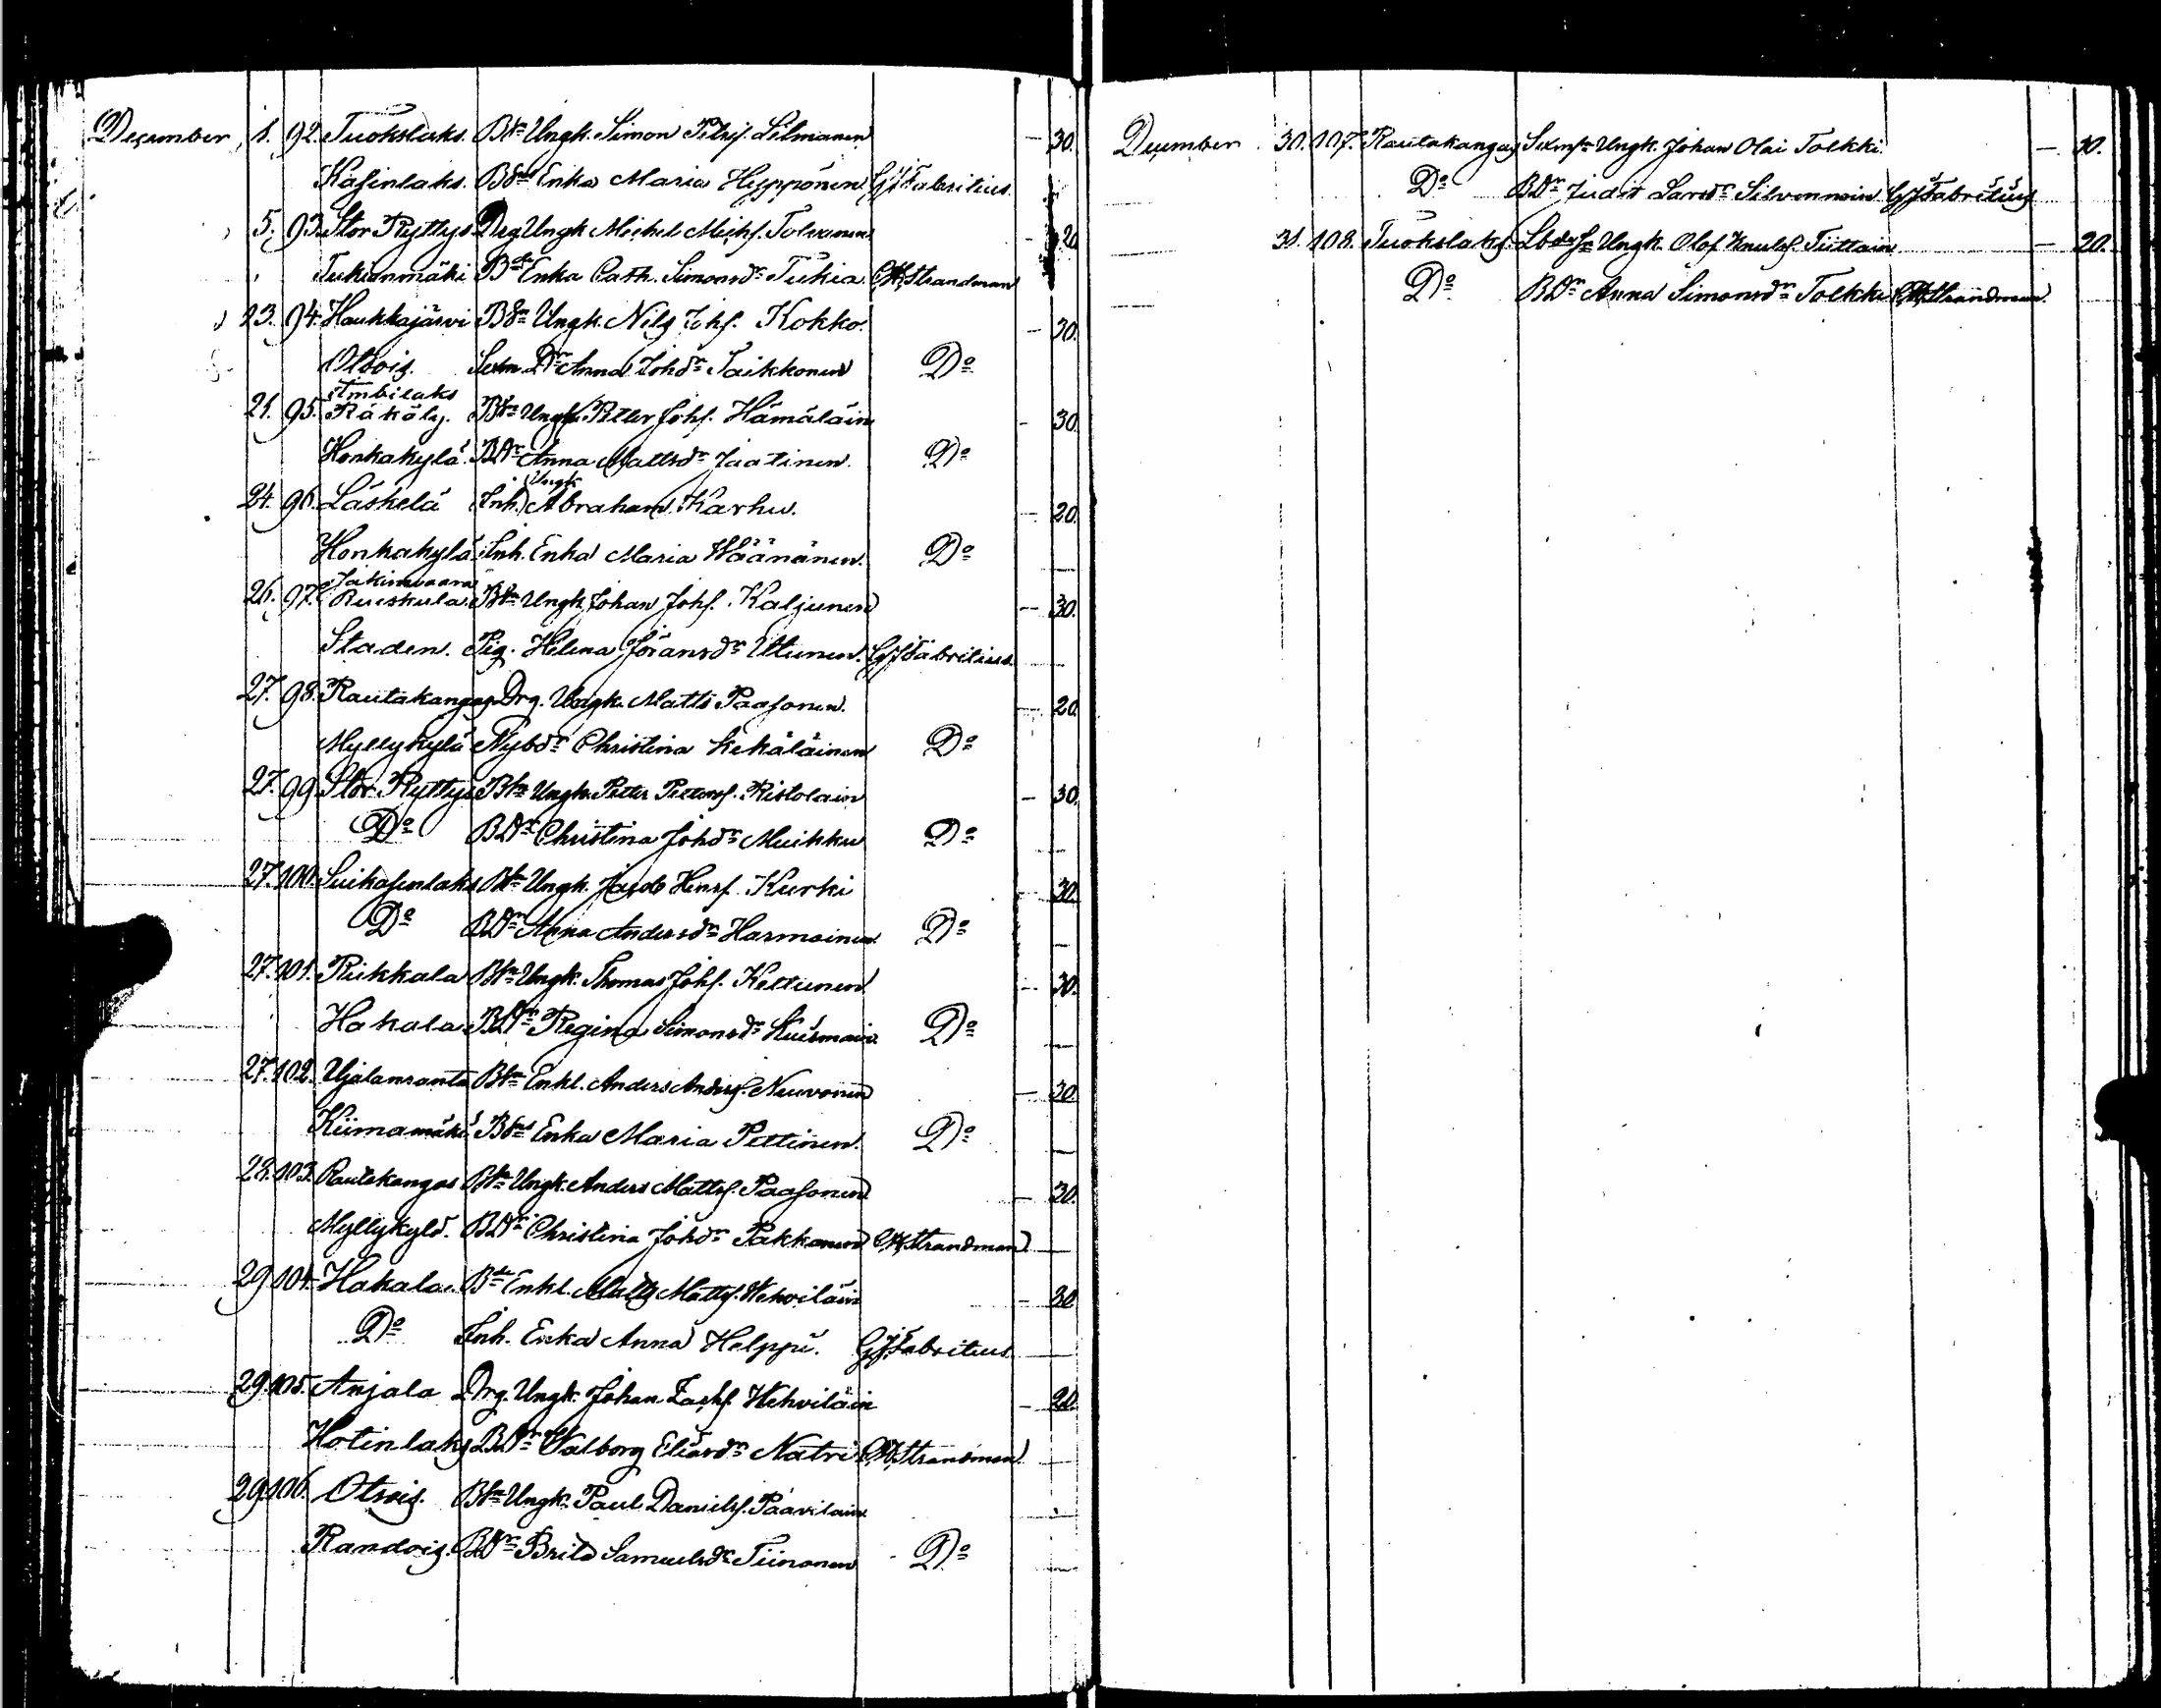 December 1. 92. Tuokslaks. Bdn Ungk. Simon Petrs. Silmanen — 30.
Kasinlaks. Bdns Enka Maria Hypponen GJFabritius.
5. 93. Stor Ryttys Drg Ungk Michel Michs. Tolvanen — 20
Tukianmäki Bde Enka Cath. Simonsdr Tukia CHStrandman
23. 94. Haukkajärvi Bdn Ungk. Nils Johs. Kokko. — 30.
Otsois. Sexm Dr Anna Johdr Saikkonen Do
Ambilaks
21. 95. Räkäly. Bdn Ungk. Peter Johs. Hämäläin — 30.
Honkakylä. BDr Anna Mattsdr Jaatinen. Do
Ungk
24. 96. Läskelä Inh. Abraham Karhu. — 20.
Honkakylä Inh. Enka Maria Wäänänen. Do
Jakimvaara
26. 97. Ruiskula. Bdn Ungk. Johan Johs. Kaljunen — 30.
Staden. Pig. Helena Göransdr Ittunen. GJFabritius.
27. 98. Rautakangas Drg. Ungk. Matts Paasonen. — 20.
Myllykylä Nybdr Christina Kekäläinen Do
27. 99. Stor Ryttys Bdn Ungk. Petter Petters. Ristolain — 30.
Do BDr Christina Johdr Muikku Do
27. 100. Suikasenlaks Bdn Ungk. Jacob Hens. Kurki — 30.
Do BDr Anna Andersdr Harmoinen. Do
27. 101. Riekkala Bdn Ungk. Thomas Johs. Kettunen — 30.
Hakala BDr Regina Simonsdr Kuismain. Do
27. 102. Ujalanranta Bdn Enkl. Anders Anders. Neuvonen — 30.
Kiimamäki Bdns Enka Maria Pettinen. Do
28. 103. Rautakangas Bdn Ungk. Anders Matts. Paasonen — 30.
Myllykylä. BDr Christina Johdr Pakkanen CHStrandman
29. 104. Hakala. Bde Enkl. Matts Matts. Wehviläin — 30
Do Inh. Enka Anna Helppi. GJFabritius
29. 105. Anjala Drg. Ungk. Johan Zachs. Wehviläin — 20.
Hotinlaks BDr Walborg Eliasdr Natri CHStrandman
29. 106. Otsois. Bdn Ungk. Paul Daniels. Paavilain
Randois. BDr Brita Samuelsdr Tiinonen Do
December 30. 107. Rautakangas Sexmsn Ungk. Johan Olai Tolkki — 30.
Do BDr Judit Larsdr Silvennoin GJFabritius
31. 108. Tuokslaks. Lbdsn Ungk. Olof Knuts. Tiittain — 20.
Do BDr Anna Simonsdr Tolkki CHStrandman